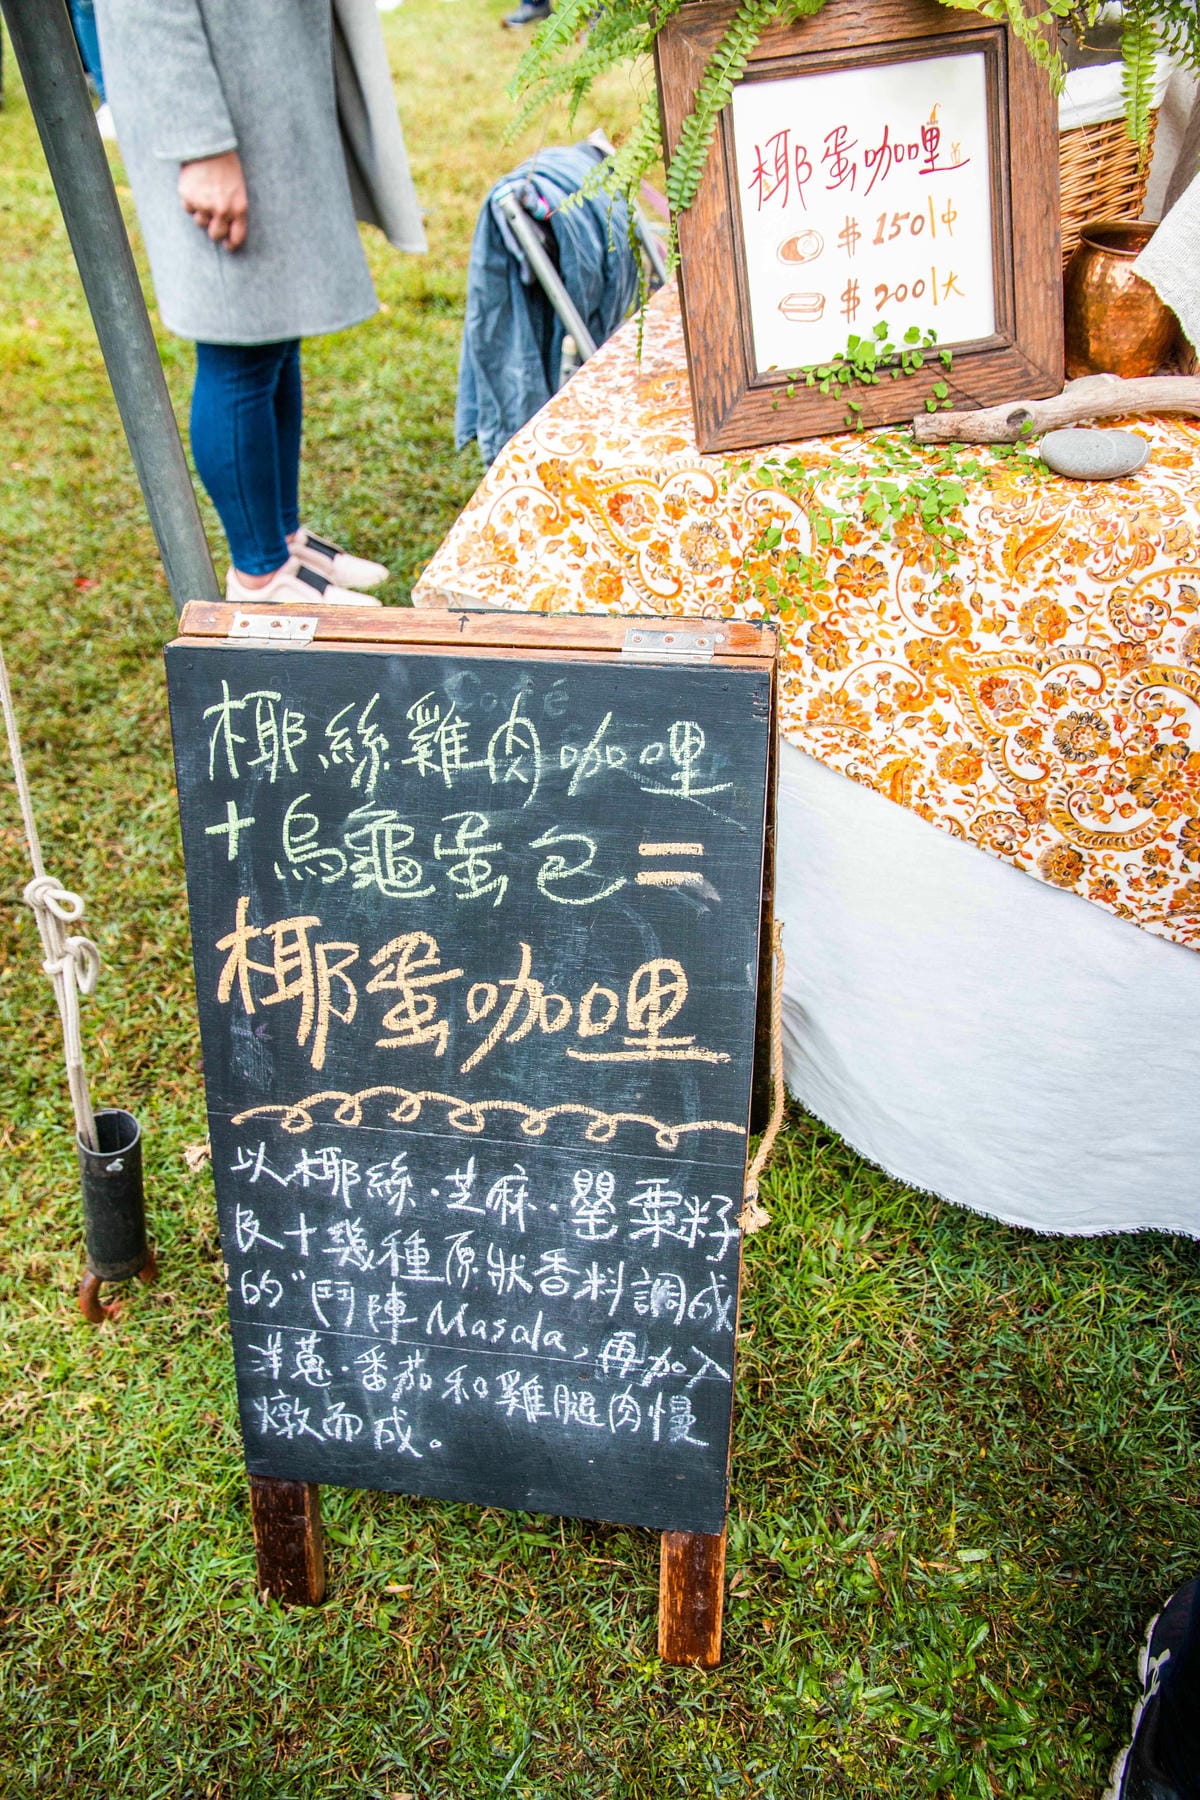 椰蛋咖哩
$150|中
$200|大
Café
椰絲雞肉咖哩
+烏龜蛋包=
椰蛋咖哩
以椰絲·芝麻·罌粟籽
及十幾種原狀香料調成
的"鬥陣Masala,再加入
洋蔥·番茄和雞腿肉慢
燉而成。